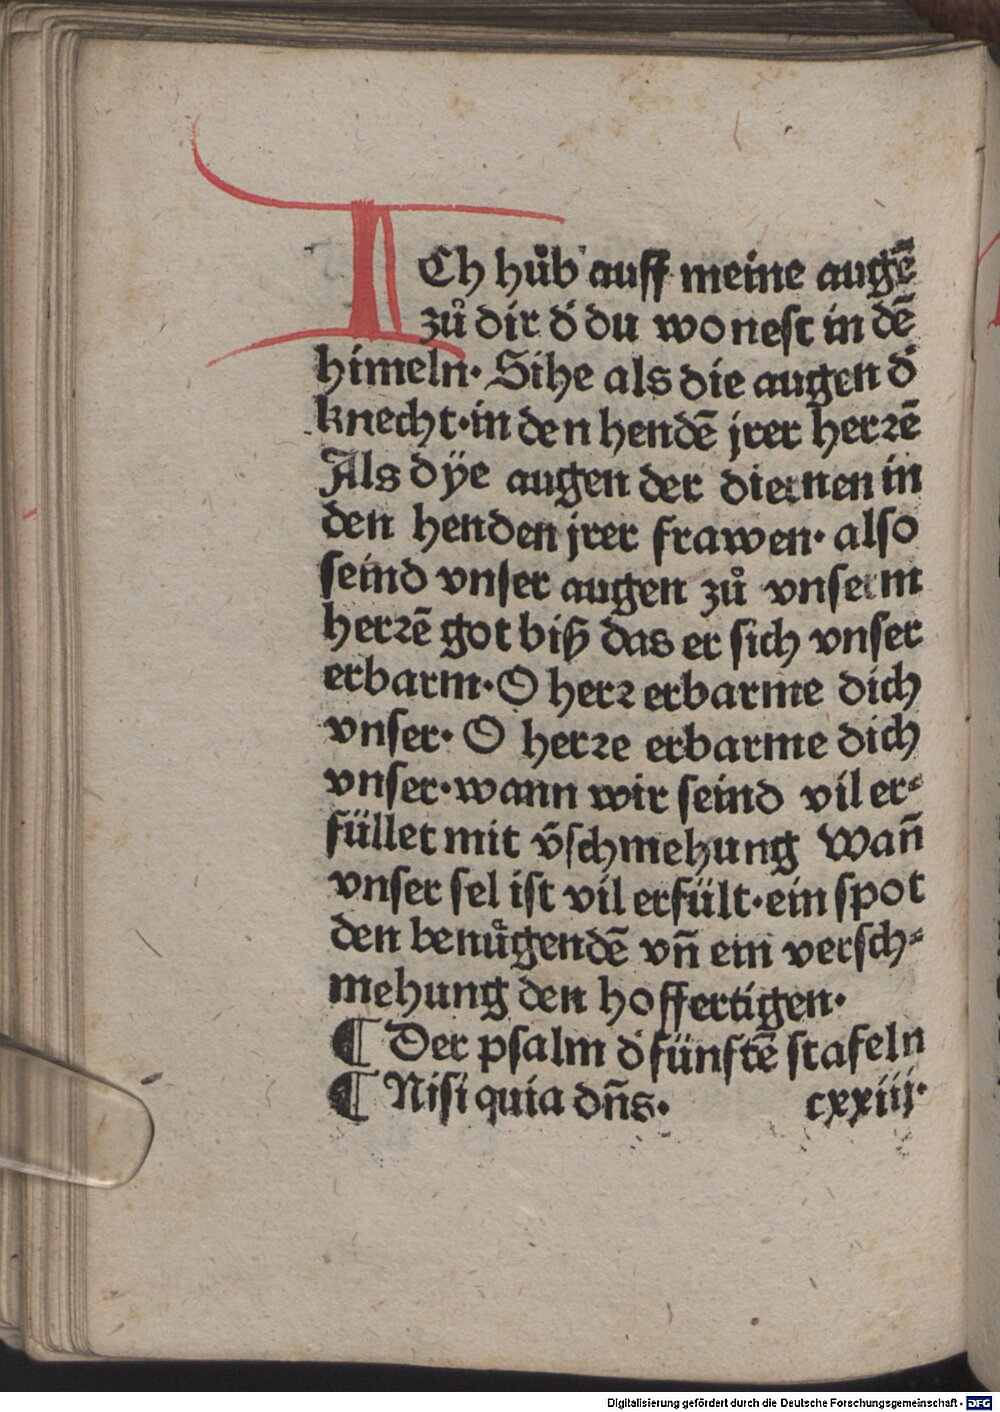 ICh hůb auff meine augē
zů dir d̄ du wonest in dē
himeln· Sihe als die augen d̄
knecht·in den hendē jrer herꝛē
Als dÿe augen der diernen in
den henden jrer frawen· also
seind vnser augen zů vnserm
herꝛē got biß das er sich vnser
erbarm·O herꝛ erbarme dich
vnser· O herꝛe erbarme dich
vnser·wann wir seind vil er⸗
füllet mit v̄schmehung Wan̄
vnser sel ist vil erfült·ein spot
den benůgendē vn̄ ein versch⸗
mehung den hoffertigen·
¶ Der psalm d̄ fünftē stafeln
¶ Nisi quia dn̄s· cxxiij·
Digitalisierung gefördert durch die Deutsche Forschungsgemeinschaft - DFG